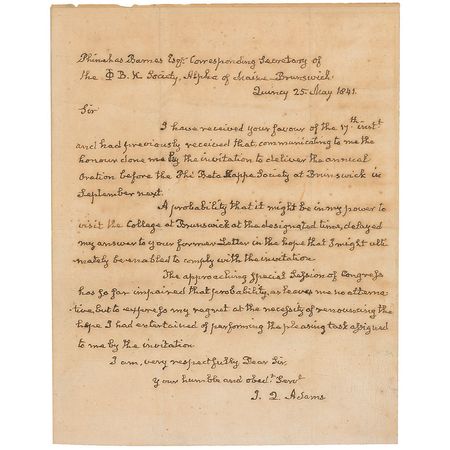 Phinehas Barnes Esqr. Corresponding Secretary of
the Φ B. K Society, Alpha of Maine - Brunswick.
Quincy 25. May 1841.
Sir
I have received your favour of the 17.th inst.t
and had previously received that, communicating to me the
honour done me by the invitation to deliver the annual
Oration before the Phi Beta Kappa Society at Brunswick in
September next.
A probability that it might be in my power to
visit the College at Brunswick at the designated time, delayed
my answer to your former Letter in the hope that I might ulti
mately be enabled to comply with the invitation.
The approaching Special Session of Congress
has so far impaired that probability, as leaves me no alterna-
tive, but to express my regret at the necessity of renouncing the
hope I had entertained of performing the pleasing task assigned
to me by the invitation
I am, very respectfully Dear Sir.
Your humble and obed.t Serv.t
J. Q. Adams